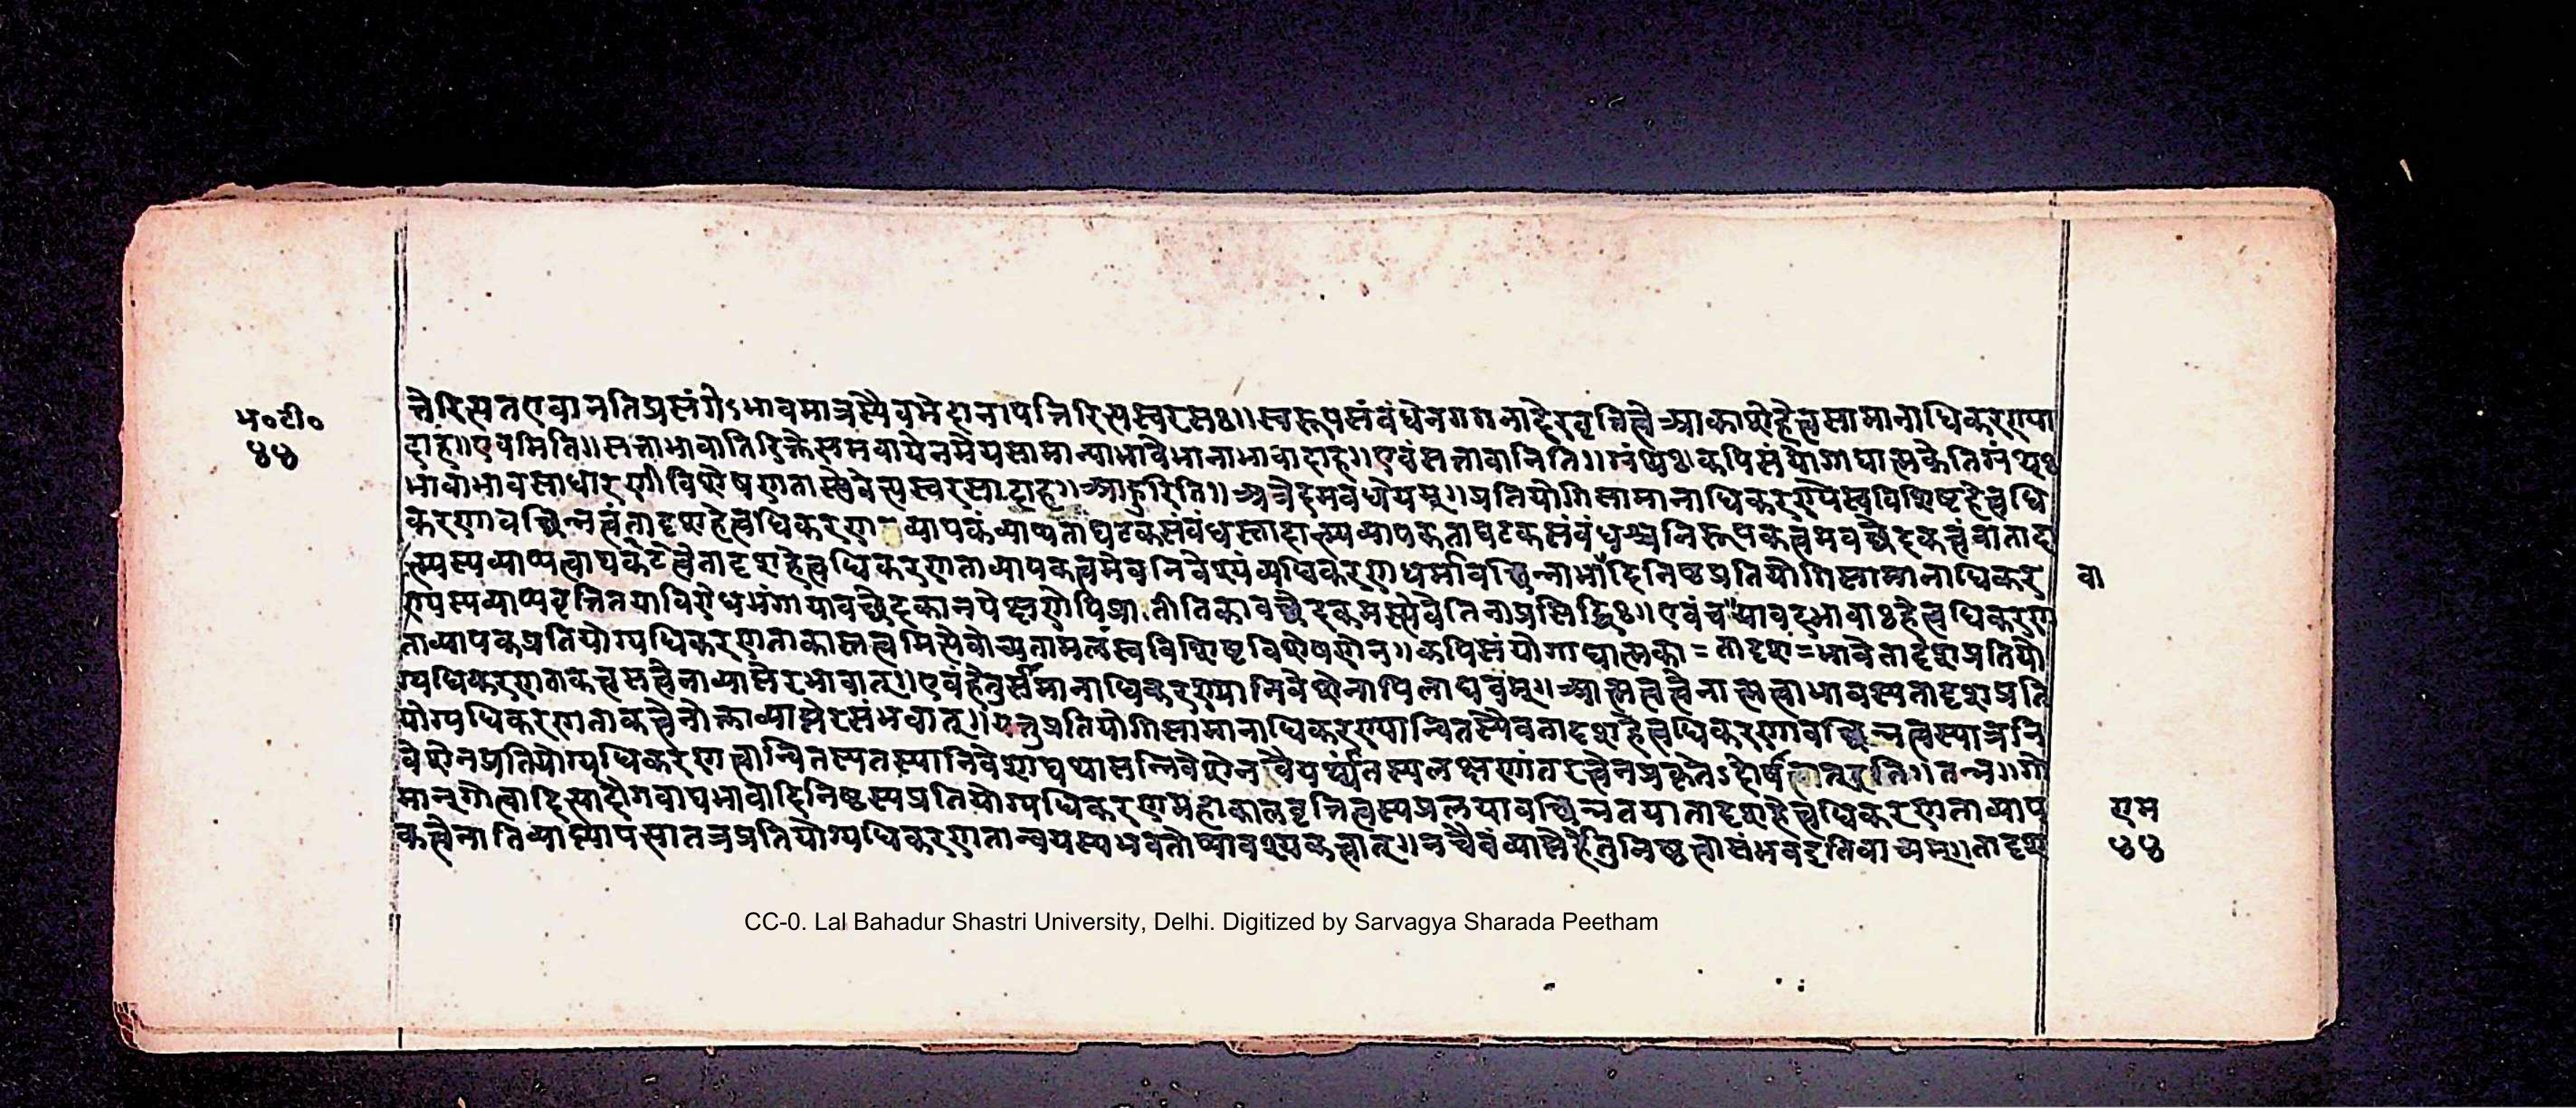 त्तेरित्यतएवानतिप्रसंगोऽभावमात्रस्यैवमेदानापत्तिरित्यस्वरसः॥स्वरूपसंबंधेनगगनादेरवृत्तित्वेआकाशेहेतुसामानाधिकरण्या
दाह॥एवमिति॥सत्ताभावातिरिक्तेसमवायेनमेयसामान्याभावेमानाभावादाह॥एवंसत्तावानिति॥ कपिसंयोगाद्यात्मकेति
भावाभावसाधारणीविशेषणतास्त्येवेत्यस्वरसादाह॥आहुरिति॥अत्रेदमवधेयम्॥प्रतियोगिसामानाधिकरण्येस्वविशिष्टहेत्वधि
करणावच्छिन्नत्वंतादृशहेत्वधिकरण=व्यापकंव्याप्यताघटकसंबंधस्तादात्म्यव्यापकताघटकसंबंधश्चनिरूपकत्वमवच्छेदकत्वंवातादा
त्म्यस्यव्याप्यत्वाघटकत्वेतादृशहेत्वधिकरणताव्यापकत्वमेवनिवेश्यंव्यधिकरणधर्मावच्छिन्नाभादिनिष्ठप्रतियोगिसामानाधिकर
वा
ण्यस्यव्याप्यवृत्तितयाविरोधभंगायावच्छेदकानपेक्षणेपिप्रातीतिकावच्छेदकमस्त्येवेतिनाप्रसिद्धिः॥एवंचयावदभावाःहेत्वधिकरण
ताव्यापकप्रतियोग्यधिकरणताकास्तत्वमित्येवोच्यतामलंस्वविशिष्टविशेषणेन॥कपिसंयोगाद्यात्मका=तादृशा=भावेतादृशप्रतियो
ग्यधिकरणताकत्वसत्वेनाव्याप्तेरभावात्॥एवंहेतुसमानाधिकरण्यानिवेशेनापिलाघवम्॥आत्मत्वत्वेनात्मत्वाभावस्यतादृशप्रति
योग्यधिकरणताकत्वेनोक्ताव्याप्तेरसंभवात्॥यत्तुप्रतियोगिसामानाधिकरण्यान्वितस्यैवतादृशहेत्वधिकरणावच्छिन्नत्वस्यात्रनि
वेशेनप्रतियोग्यधिकरणत्वान्वितस्यतस्यानिवेशाद्यथासन्निवेशेनवैयर्थ्यंतस्यलक्षणांतरत्वेनप्रकृतेऽदोषत्वात्इति॥तन्न॥गो
मान्गोत्वादित्यादौगवाद्यभावादिनिष्ठस्यप्रतियोग्यधिकरणमहाकालवृत्तित्वस्यप्रलयावच्छिन्नतयातादृशहेत्वधिकरणताव्याप
कत्वेनातिव्याप्त्यापत्यातत्रप्रतियोग्यधिकरणतान्वयस्यभवतोप्यावश्यकत्वात्॥नचैवंव्याप्तेर्हेतुनिष्ठत्वासंभवइतिवाच्यम्॥तादृश
राम
४४
भ०टी०
४४
CC-0. Lal Bahadur Shastri University, Delhi. Digitized by Sarvagya Sharada Peetham